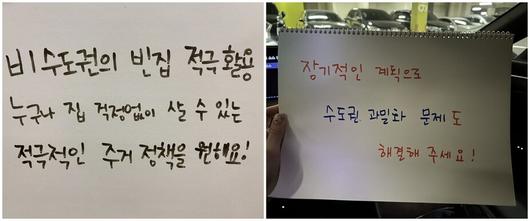 비수도권의 빈집 적극 활용
누구나 집 걱정없이 살 수 있는
적극적인 주거 정책을 원해요!
장기적인 계획으로
수도권 과밀화 문제도
해결해 주세요!